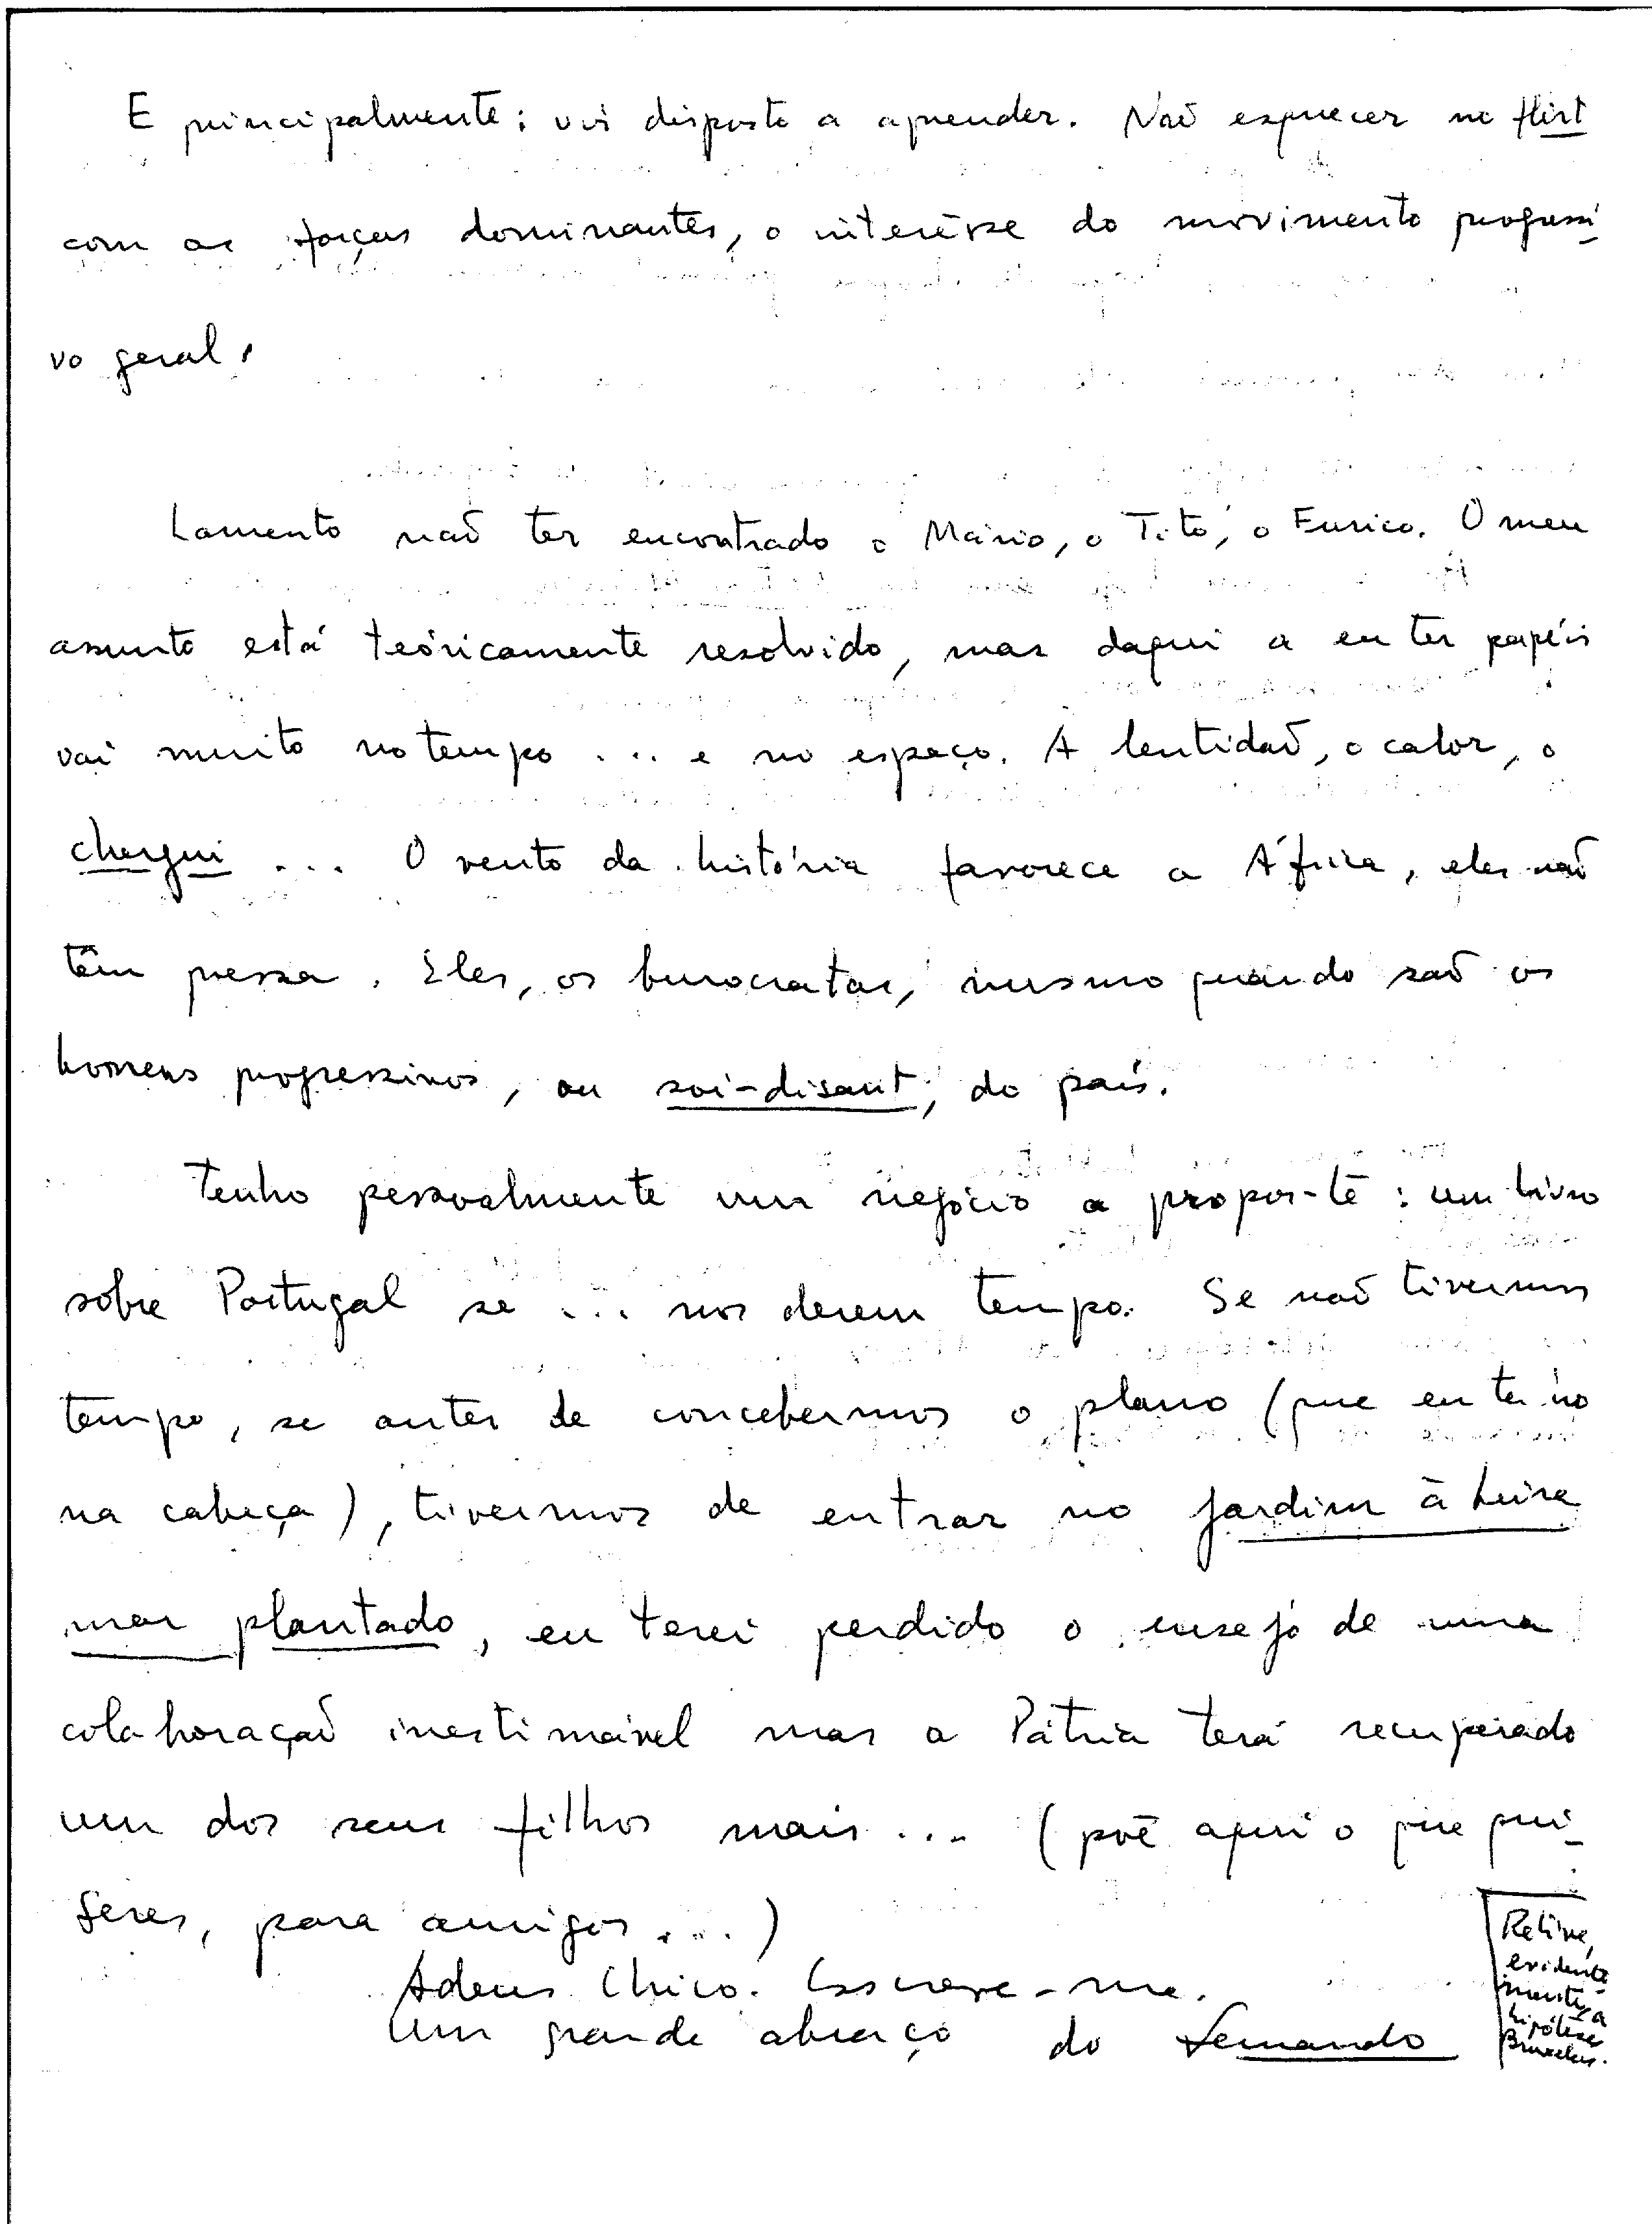 E principalmente: vais disposto a aprender. Não esquecer no flirt
com as forças dominantes, o interêsse do movimento progressi-
vo geral.
Lamento não ter encontrado o Mário, o Tito, o Eurico. O meu
assunto está teóricamente resolvido, mas daqui a eu ter papéis
vai muito no tempo ... e no espaço. A lentidão, o calor, o
chergui ... O vento da história favorece a África, eles não
têm pressa. Eles, os burocratas, mesmo quando são os
homens progressivos, ou soi-disant, do país.
Tenho pessoalmente um negócio a propor-te: um livro
sôbre Portugal se ... nos derem tempo. Se não tivermos
tempo, se antes de concebermos o plano (que eu tenho
na cabeça), tivermos de entrar no jardim à beira
mar plantado, eu terei perdido o ensejo de uma
colaboração inestimável mas a Pátria terá recuperado
um dos seus filhos mais ... (põe aqui o que qui-
seres, para amigos ...)
Adeus Chico. Escreve-me.
Um grande abraço do Fernando
evidente-
mente, a
hipótese
Bruxelas.